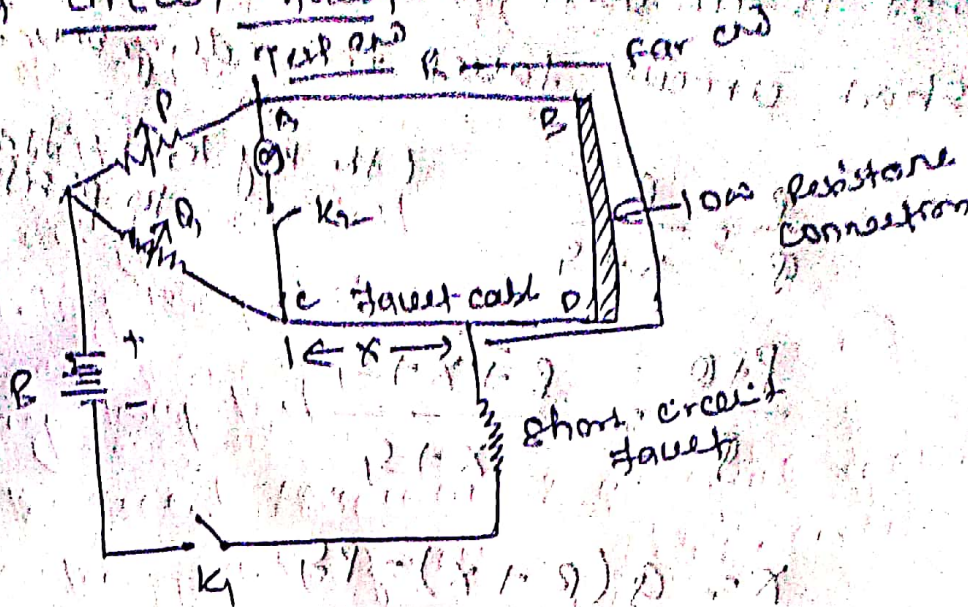 Test end
Far end
R
P
A
B
G
Q
K2
low Resistane
connection
C Fault cabl D
x
+
B
-
Short circuit
Fault
K1